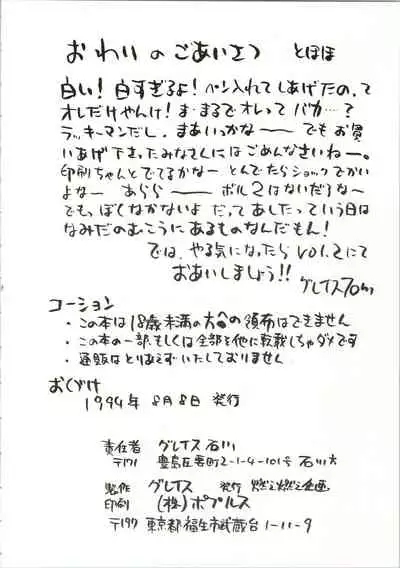 おわりのごあいさつ とほほ
白い! 白すぎるよ! ペン入れてしあげたの、て
オレだけやんけ! ま・まるでオレってバカ…?
ラッキーマンだし、まあいっかなー でもお買
いあげ下さったみなさんにはごめんなさいねー。
印刷ちゃんとでてるかなー とんでたらショックでかい
よなー あらら ー ボル2はないだろなー
でも、ぼくなかないよ だってあしたっていう日は
なみだのむこうにあるものなんだもん!
では、やる気になったら Vol.2にて
おあいしましょう!! グレイス石川
コーション
・この本は18歳未満の方への頒布はできません
・この本の一部、もしくは全部を他に転載しちゃダメです
・通販はとりあえずいたしておりません
おくづけ
1994年 8月8日 発行
責任者 グレイス石川
〒171 豊島区要町2-1-4-101号 石川方
製作 グレイス 発行 燃え燃え企画
印刷 (株)ポプルス
〒197 東京都福生市武蔵台1-11-9